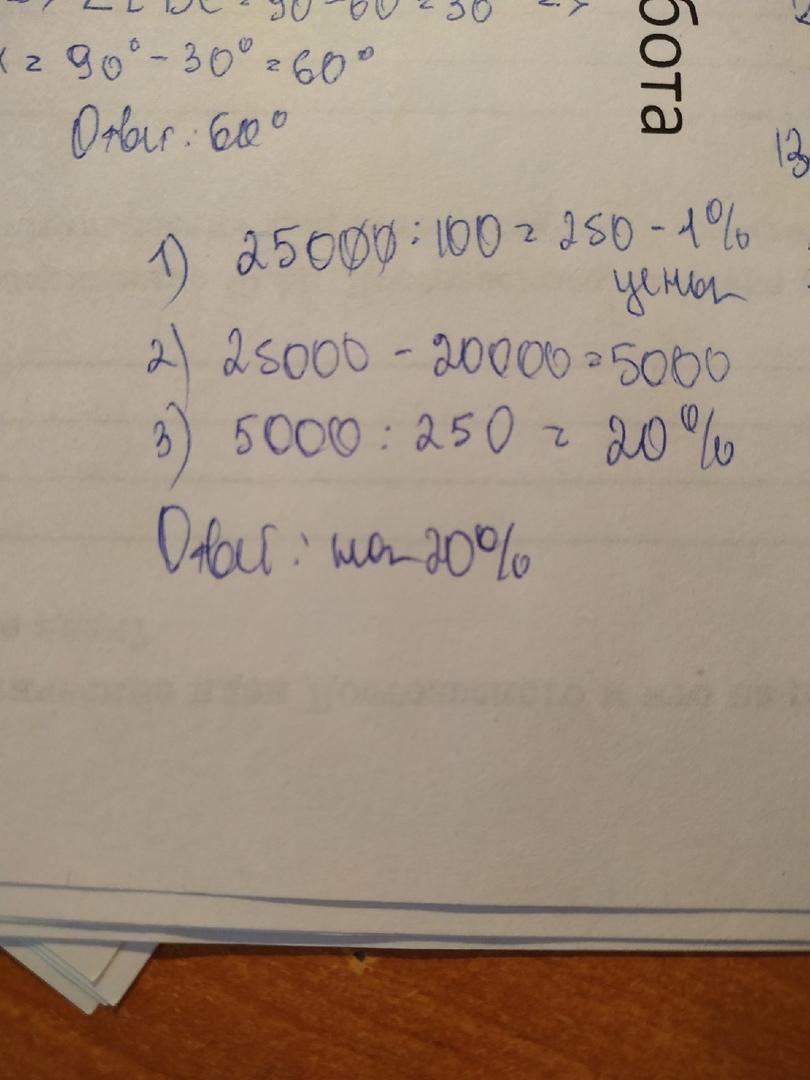 = 90 - 60 = 30° =>
= 90° - 30° = 60°
Ответ: 60°
бота
13
1) 25000 : 100 = 250 - 1%
цены
2) 25000 - 20000 = 5000
3) 5000 : 250 = 20%
Ответ: на 20%